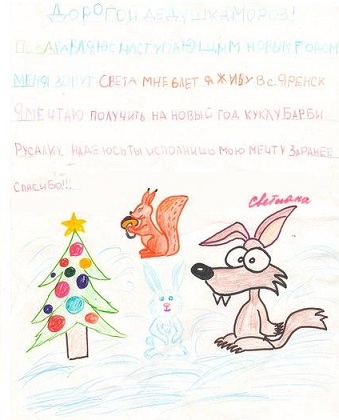 ДОРОГОЙ ДЕДУШКА МОРОЗ!
ПОЗДРАВЛЯЮ С НАСТУПАЮЩИМ НОВЫМ ГОДОМ
МЕНЯ ЗОВУТ СВЕТА МНЕ 8 ЛЕТ Я ЖИВУ В С. ЯРЕНСК
Я МЕЧТАЮ ПОЛУЧИТЬ НА НОВЫЙ ГОД КУКЛУ БАРБИ
РУСАЛКУ. НАДЕЮСЬ ТЫ ИСПОЛНИШЬ МОЮ МЕЧТУ ЗАРАНЕЕ
СПАСИБО!!!
Светлана